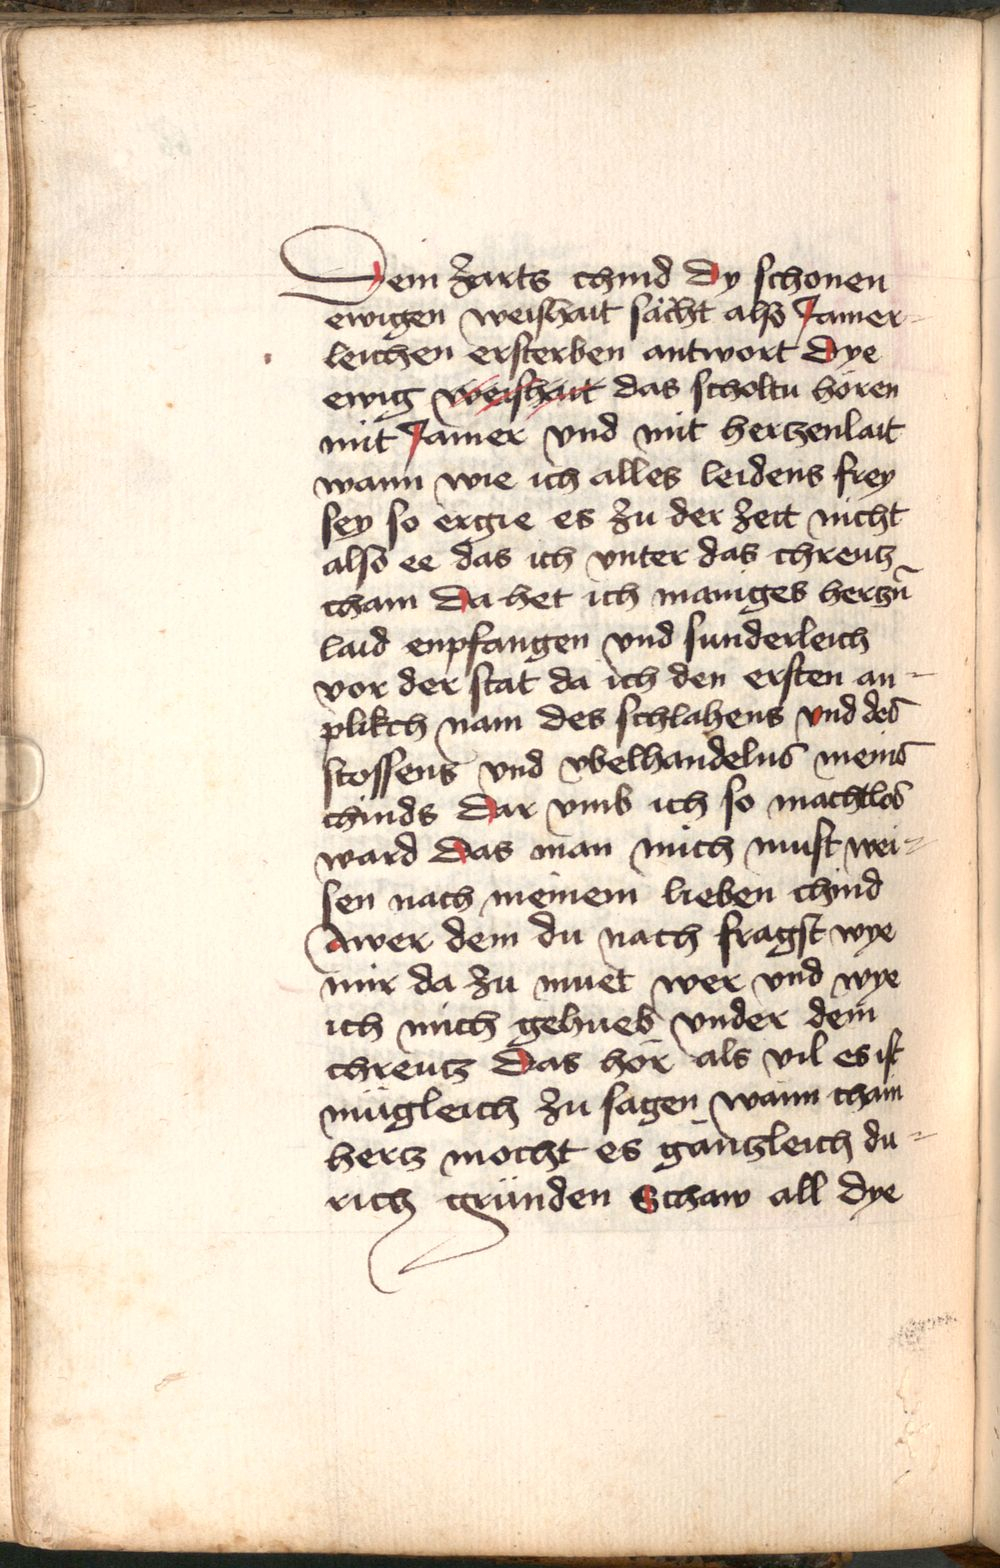 Dein zarts chind dy schonen
ewigen weishait sächt alss Jamer-
leichen ersterben antwort dye
ewig weishait das scholtu hören
mit Jamer vnd mit hertzenlait
wann wie ich alles leidens frey
sey so ergie es zu der zeit nicht
also ee das ich vnter das chreutz
cham da het ich maniges hertzn̄
laid enpfangen vnd sunderleich
vor der stat da ich den ersten an-
plikch nam des schlahens vnd des
stossens vnd vbelhandelns meins
chinds dar vmb ich so machtlos
ward das man mich must wei-
sen nach meinem lieben chind
Awer dem du nach fragst wye
mir da zu muet wer vnd wye
ich mich gehueb vnder dem
chreutz das hör als vil es ist
mügleich zu sagen wann cham
hertz mocht es gäntzleich du-
rich gründen Schaw all dye